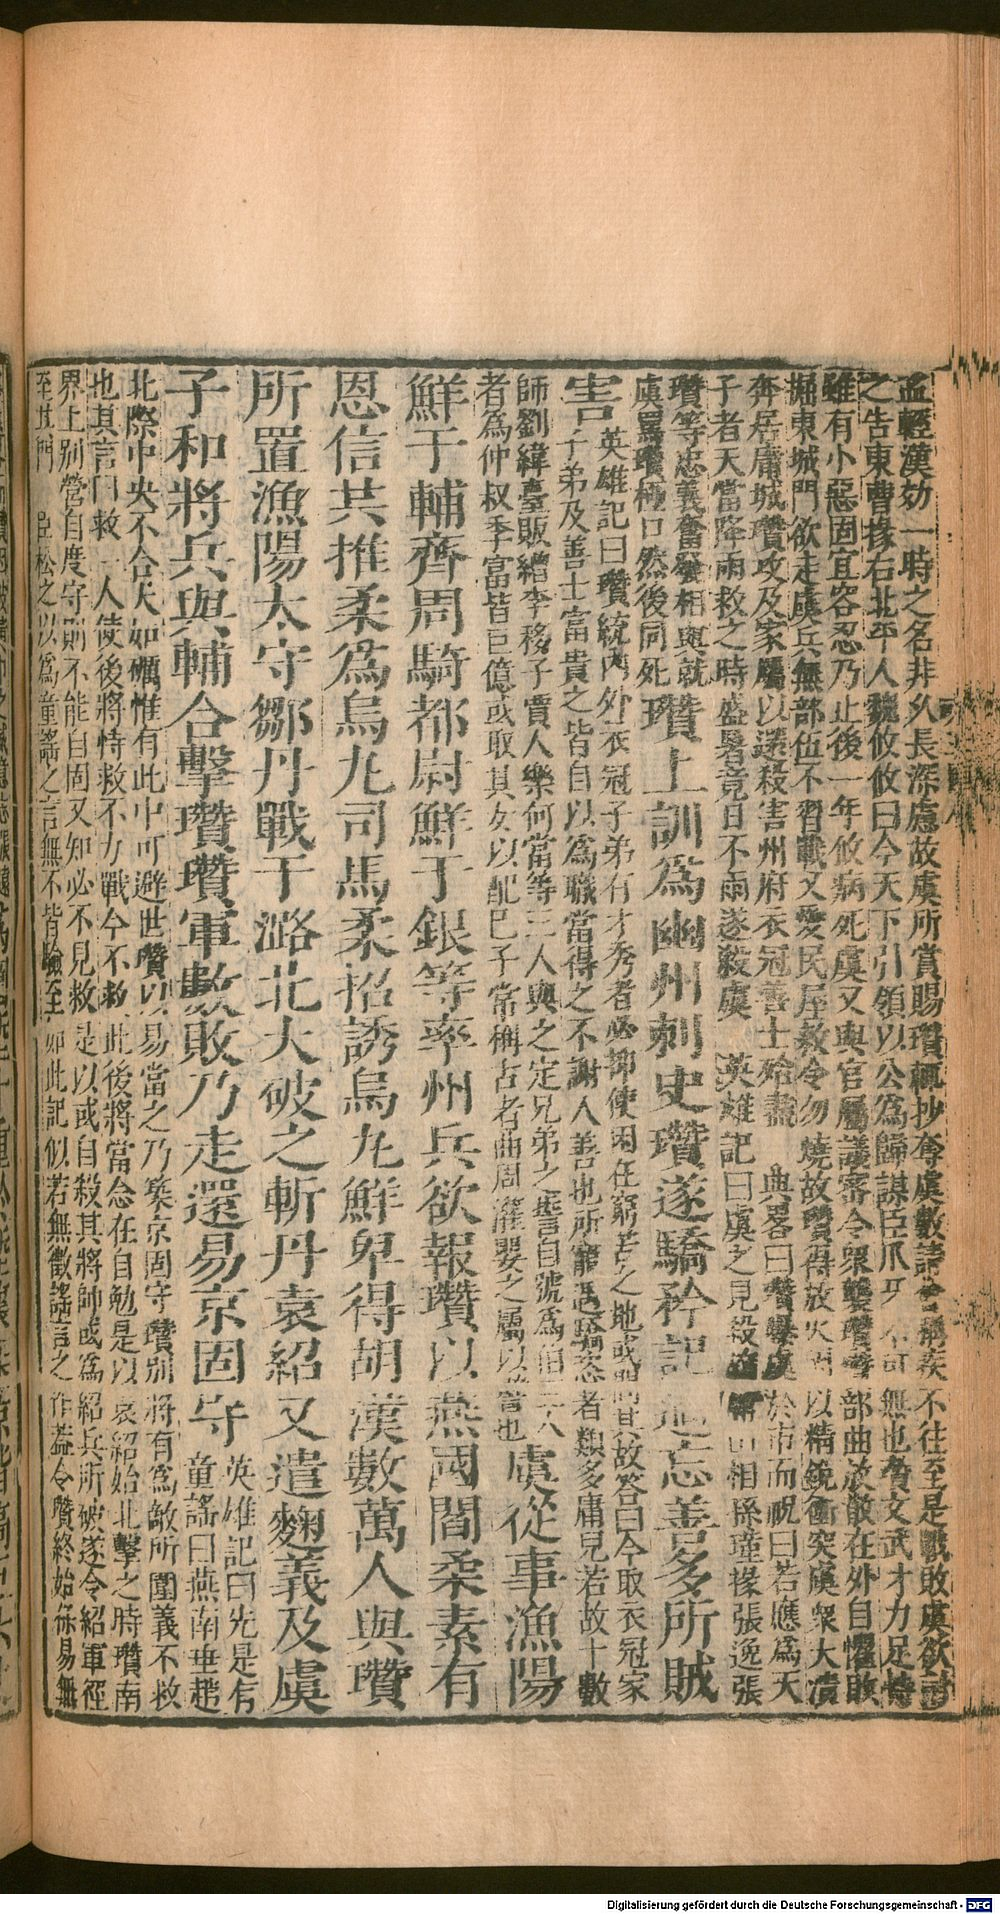 孟輕漢効一時之名非久長深慮故虞所賞賜瓚輒抄奪虞數請會稱疾不往至是戰敗虞欲討
之告東曹掾右北平人魏攸攸曰今天下引領以公爲歸謀臣爪牙不可無也瓚文武才力足恃
雖有小惡固宜容忍乃止後一年攸病死虞又與官屬議密令衆襲瓚瓚部曲放散在外自懼敗
掘東城門欲走虞兵無部伍不習戰又愛民屋敕令勿燒故瓚得放火因以精銳衝突虞衆大潰
奔居庸城瓚攻及家屬以還殺害州府衣冠善士殆盡 典畧曰瓚曝虞於市而祝曰若應爲天
子者天當降雨救之時盛暑竟日不雨遂殺虞 英雄記曰虞之見殺故常山相孫瑾掾張逸張
瓚等忠義奮發相與就
虞罵瓚極口然後同死
瓚上訓爲幽州刺史瓚遂驕矜記過忘善多所賊
害
英雄記曰瓚統內外衣冠子弟有才秀者必抑使困在窮苦之地或問其故答曰今取衣冠家
子弟及善士富貴之皆自以爲職當得之不謝人善也所寵遇驕恣者類多庸兒若故十數
師劉緯臺販繒李移子賈人樂何當等三人與之定兄弟之誓自號爲伯三人
者爲仲叔季富皆巨億或取其女以配己子常稱古者曲周灌嬰之屬以譬也
虞從事漁陽
鮮于輔齊周騎都尉鮮于銀等率州兵欲報瓚以燕國閻柔素有
恩信共推柔爲烏丸司馬柔招誘烏丸鮮卑得胡漢數萬人與瓚
所置漁陽太守鄒丹戰于潞北大破之斬丹袁紹又遣麴義及虞
子和將兵與輔合擊瓚瓚軍數敗乃走還易京固守
英雄記曰先是有
童謠曰燕南垂趙
北際中央不合大如礪惟有此中可避世瓚以易當之乃築京固守瓚別將有爲敵所圍義不救
也其言曰救一人使後將恃救不力戰今不救此後將當念在自勉是以袁紹始北擊之時瓚南
界上別營自度守則不能自固又知必不見救是以或自殺其將帥或爲紹兵所破遂令紹軍徑
至其門 臣松之以爲童謠之言無不皆驗至如此記似若無徵謠言之作葢令瓚終始保易無